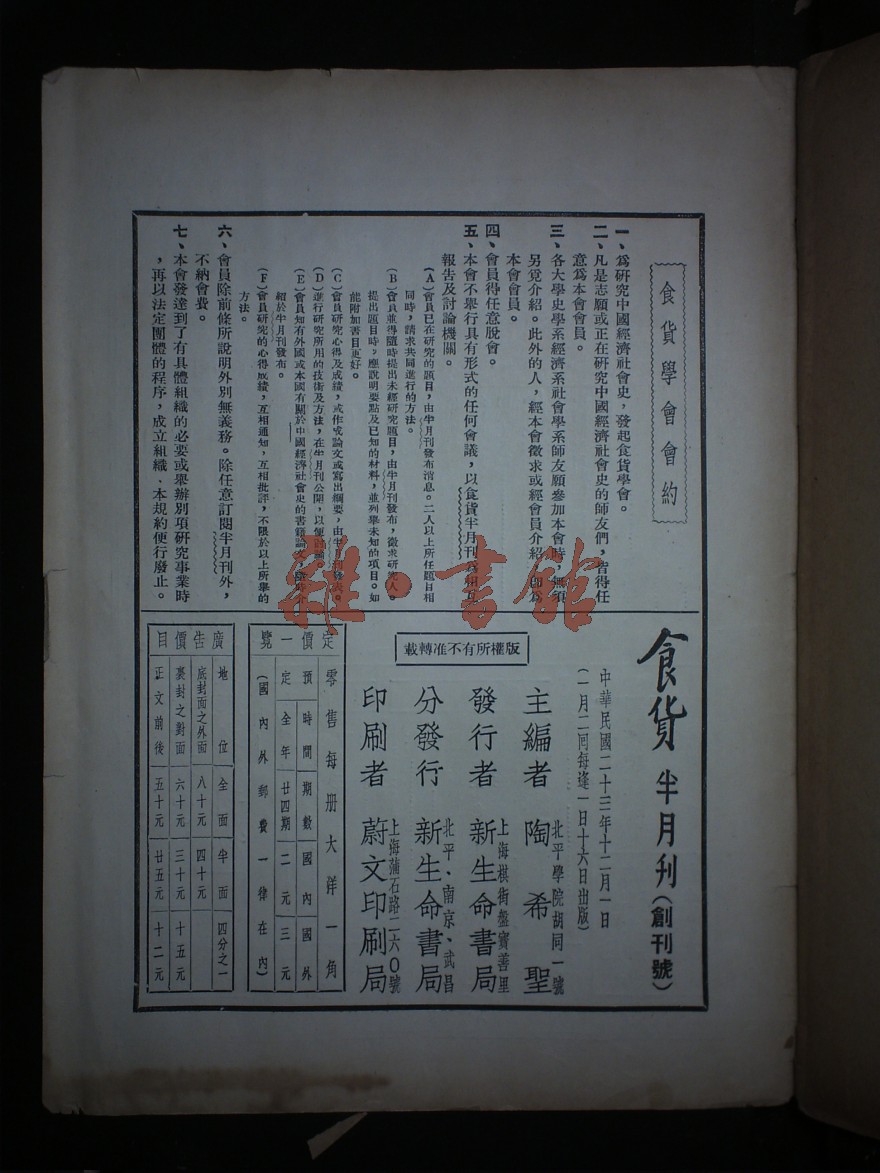 食貨學會會約
一、爲研究中國經濟社會史，發起食貨學會。
二、凡是志願或正在研究中國經濟社會史的師友們，皆得任
意爲本會會員。
三、各大學史學系經濟系社會學系師友願參加本會時，無須
另覓介紹。此外的人，經本會徵求或經會員介紹，即爲
本會會員。
四、會員得任意脫會。
五、本會不舉行具有形式的任何會議，以食貨半月刊爲相互
報告及討論機關。
（A）會員已在研究的題目，由半月刊發布消息。二人以上所任題目相
同時，請求共同進行的方法。
（B）會員並得隨時提出未經研究題目，由半月刊發布，徵求研究人。
提出題目時，應說明要點及已知的材料，並列舉未知的項目。如
能附加書目更好。
（C）會員研究心得及成績，或作成論文或寫出綱要，由半月刊發表。
（D）進行研究所用的技術及方法，在半月刊公開，以便討論
（E）會員知有外國或本國有關於中國經濟社會史的書籍論文，隨時介
紹於半月刊發布。
（F）會員研究的心得成績，互相通知，互相批評，不限於以上所舉的
方法。
六、會員除前條所說明外別無義務。除任意訂閱半月刊外，
不納會費。
七、本會發達到了有具體組織的必要或舉辦別項研究事業時
，再以法定團體的程序，成立組織，本規約便行廢止。
食貨 半月刊（創刊號）
中華民國二十三年十二月一日
（一月二回每逢一日十六日出版）
主編者 陶希聖
北平學院胡同一號
發行者 新生命書局
上海棋盤街寶善里
分發行 新生命書局
北平、南京、武昌
印刷者 蔚文印刷局
上海蒲石路二六〇號
版權所有不准轉載
定價一覽
零售每册大洋一角
預定
時間 期數 國內 國外
全年 廿四期 二元 三元
（國內外郵費一律在內）
廣告價目
地位 全面 半面 四分之一
底封面之外面 八十元 四十元
裏封之對面 六十元 三十元 十五元
正文前後 五十元 廿五元 十二元
雜·書館